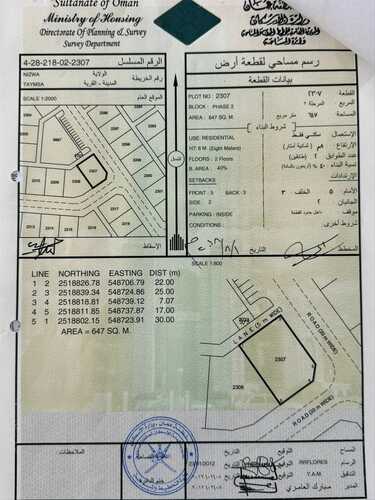 Sultanate of Oman
Ministry of Housing
Directorate Of Planning & Survey
Survey Department
4-28-218-02-2307
الرقم المسلسل
رسم مساحي لقطعة أرض
NIZWA
الولاية
TAYMSA
المدينة - القرية
رقم الخريطة
بيانات القطعة
SCALE 1:2000
الموقع العام
PLOT NO : 2307
٢٣٠٧
القطعة
BLOCK : PHASE 2
المرحلة ٢
المربع
AREA : 647 SQ. M.
٦٤٧
متر مربع
المساحة
شروط البناء
USE: RESIDENTIAL
سكني فقط
الاستعمال
HT: 8 M. (Eight Meters)
٨م (ثمانية أمتار)
الارتفاع
FLOORS : 2 Floors
٢ (طابقين)
عدد الطوابق
B. AREA: 40%
٤٠ % (أربعون بالمائة)
نسبة البناء
SETBACKS
الإرتدادات
FRONT : 5 BACK : 3
الأمام ٥ الخلف ٣
SIDE : 2
الجانبان ٢
PARKING : INSIDE
داخل حدود القطعة
موقف
شروط أخرى
2307
الإسقاط
الشمال
التاريخ
المخطط
LINE NORTHING EASTING DIST (m)
1 2 2518826.78 548706.79 22.00
2 3 2518839.34 548724.86 25.00
3 4 2518818.81 548739.12 7.07
4 5 2518811.85 548737.87 17.00
5 1 2518802.15 548723.91 30.00
AREA = 647 SQ. M.
SCALE 1:500
LANE (5 m WIDE)
2307
2306
ROAD (20 m WIDE)
ROAD (20 m WIDE)
الملاحظات
المساح
IRRFLORES
التوقيع
التاريخ
الرسام
Y.A.M.
التوقيع
التاريخ
المدير
مبارك العامري
التوقيع
التاريخ